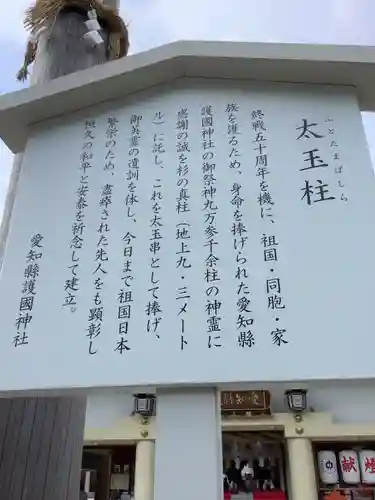 太玉柱
ふとたまばしら
終戦五十周年を機に、祖国・同胞・家
族を護るため、身命を捧げられた愛知縣
護國神社の御祭神九万参千余柱の神霊に
感謝の誠を杉の真柱（地上九・三メート
ル）に託し、これを太玉串として捧げ、
御英霊の遺訓を体し、今日まで祖国日本
繁栄のため、盡瘁された先人をも顕彰し
恒久の和平と安泰を祈念して建立。
愛知縣護國神社
献
燈